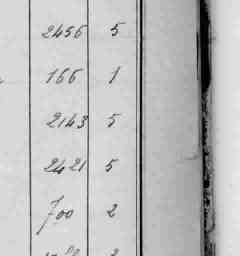 2456 5
166 1
2143 5
2421 5
700 2